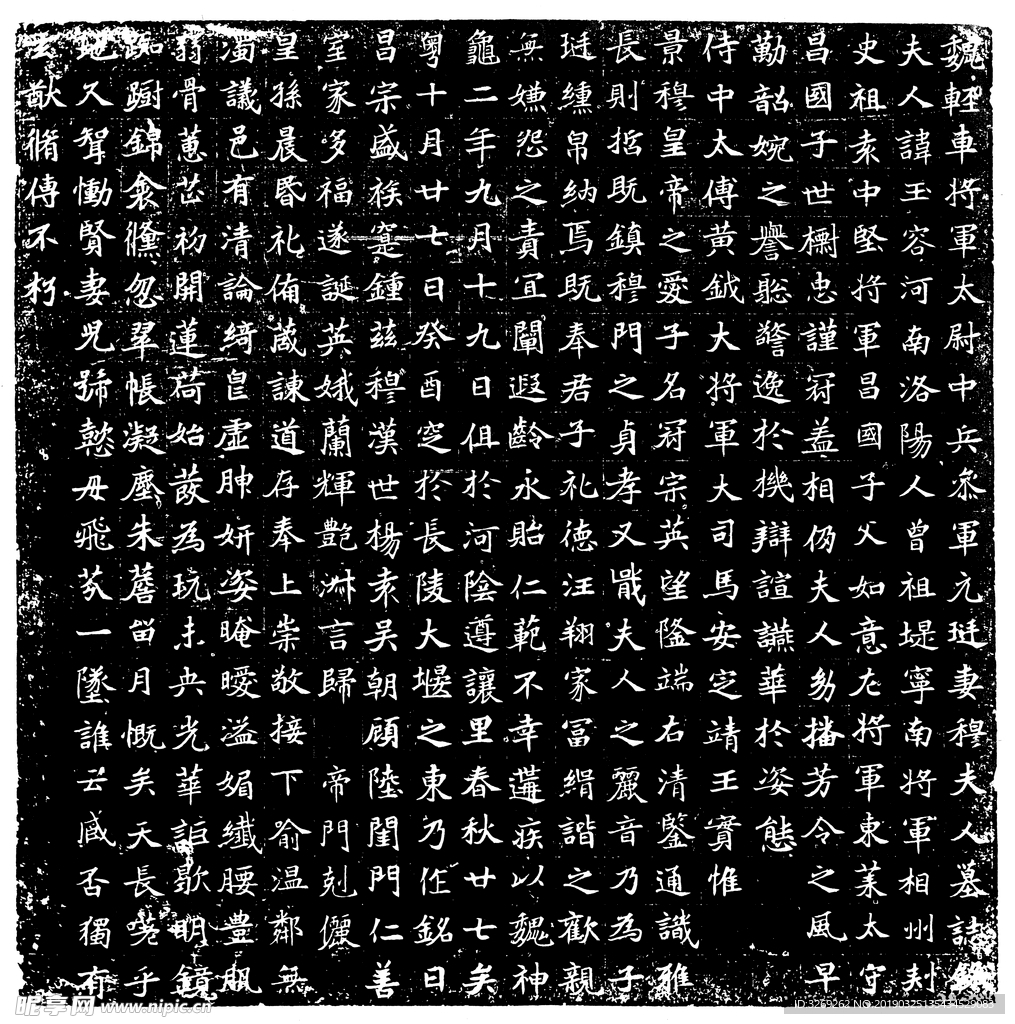 魏輕車將軍太尉中兵叅軍元珽妻穆夫人墓誌銘
夫人諱玉容河南洛陽人曾祖堤寧南將軍相州刾
史祖袁中堅將軍昌國子父如意左將軍東萊太守
昌國子世樹忠謹冠蓋相仍夫人幼播芳令之風早
勤韶婉之譽聡警逸於機辯諠讌華於姿態
侍中太傅黃鉞大將軍大司馬安定靖王實惟
景穆皇帝之愛子名冠宗英望隆端右清鑒通識雅
長則哲既鎮穆門之貞孝又戢夫人之麗音乃為子
珽纁帛納焉既奉君子礼德汪翔家冨緝諧之歡親
無嫌怨之責宜闡遐齡永貽仁範不幸遘疾以魏神
龜二年九月十九日俎於河陰遵讓里春秋廿七矣
粵十月廿七日癸酉窆於長陵大堰之東乃作銘曰
昌宗盛族寔鍾茲穆漢世楊袁吳朝顧陸閨門仁善
室家多福遂誕英娥蘭輝艶淋言歸帝門剋儷
皇孫晨昏礼俻葴諫道存奉上崇敬接下喻温鄰無
濁議邑有清論綺皃虛胂妍姿晻曖溢媚纖腰豊肌
弱骨蕙芷初開蓮荷始蕟為玩未央光華詎歇明鏡
踟躕錦衾儵忽翠帳凝塵朱簷留月慨矣天長嗟乎
地久聟慟賢妻兒號懿母飛芬一墜誰云臧否獨有
玄猷脩傳不朽
昵享网 www.nipic.cn